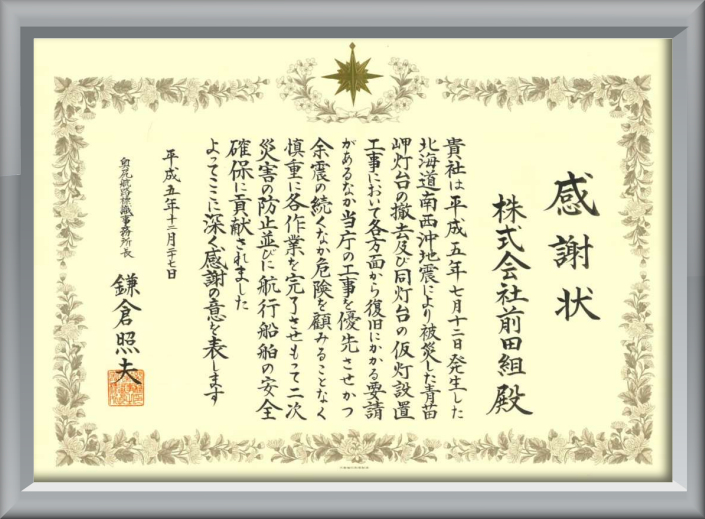 感謝状
株式会社前田組 殿
貴社は平成五年七月十二日発生した
北海道南西沖地震により被災した青苗
岬灯台の撤去及び同灯台の仮灯設置
工事において各方面から復旧にかかる要請
があるなか当庁の工事を優先させかつ
余震の続くなか危険を顧みることなく
慎重に各作業を完了させもって二次
災害の防止並びに航行船舶の安全
確保に貢献されました
よってここに深く感謝の意を表します
平成五年十二月二十七日
奥尻航路標識事務所長
鎌倉照夫